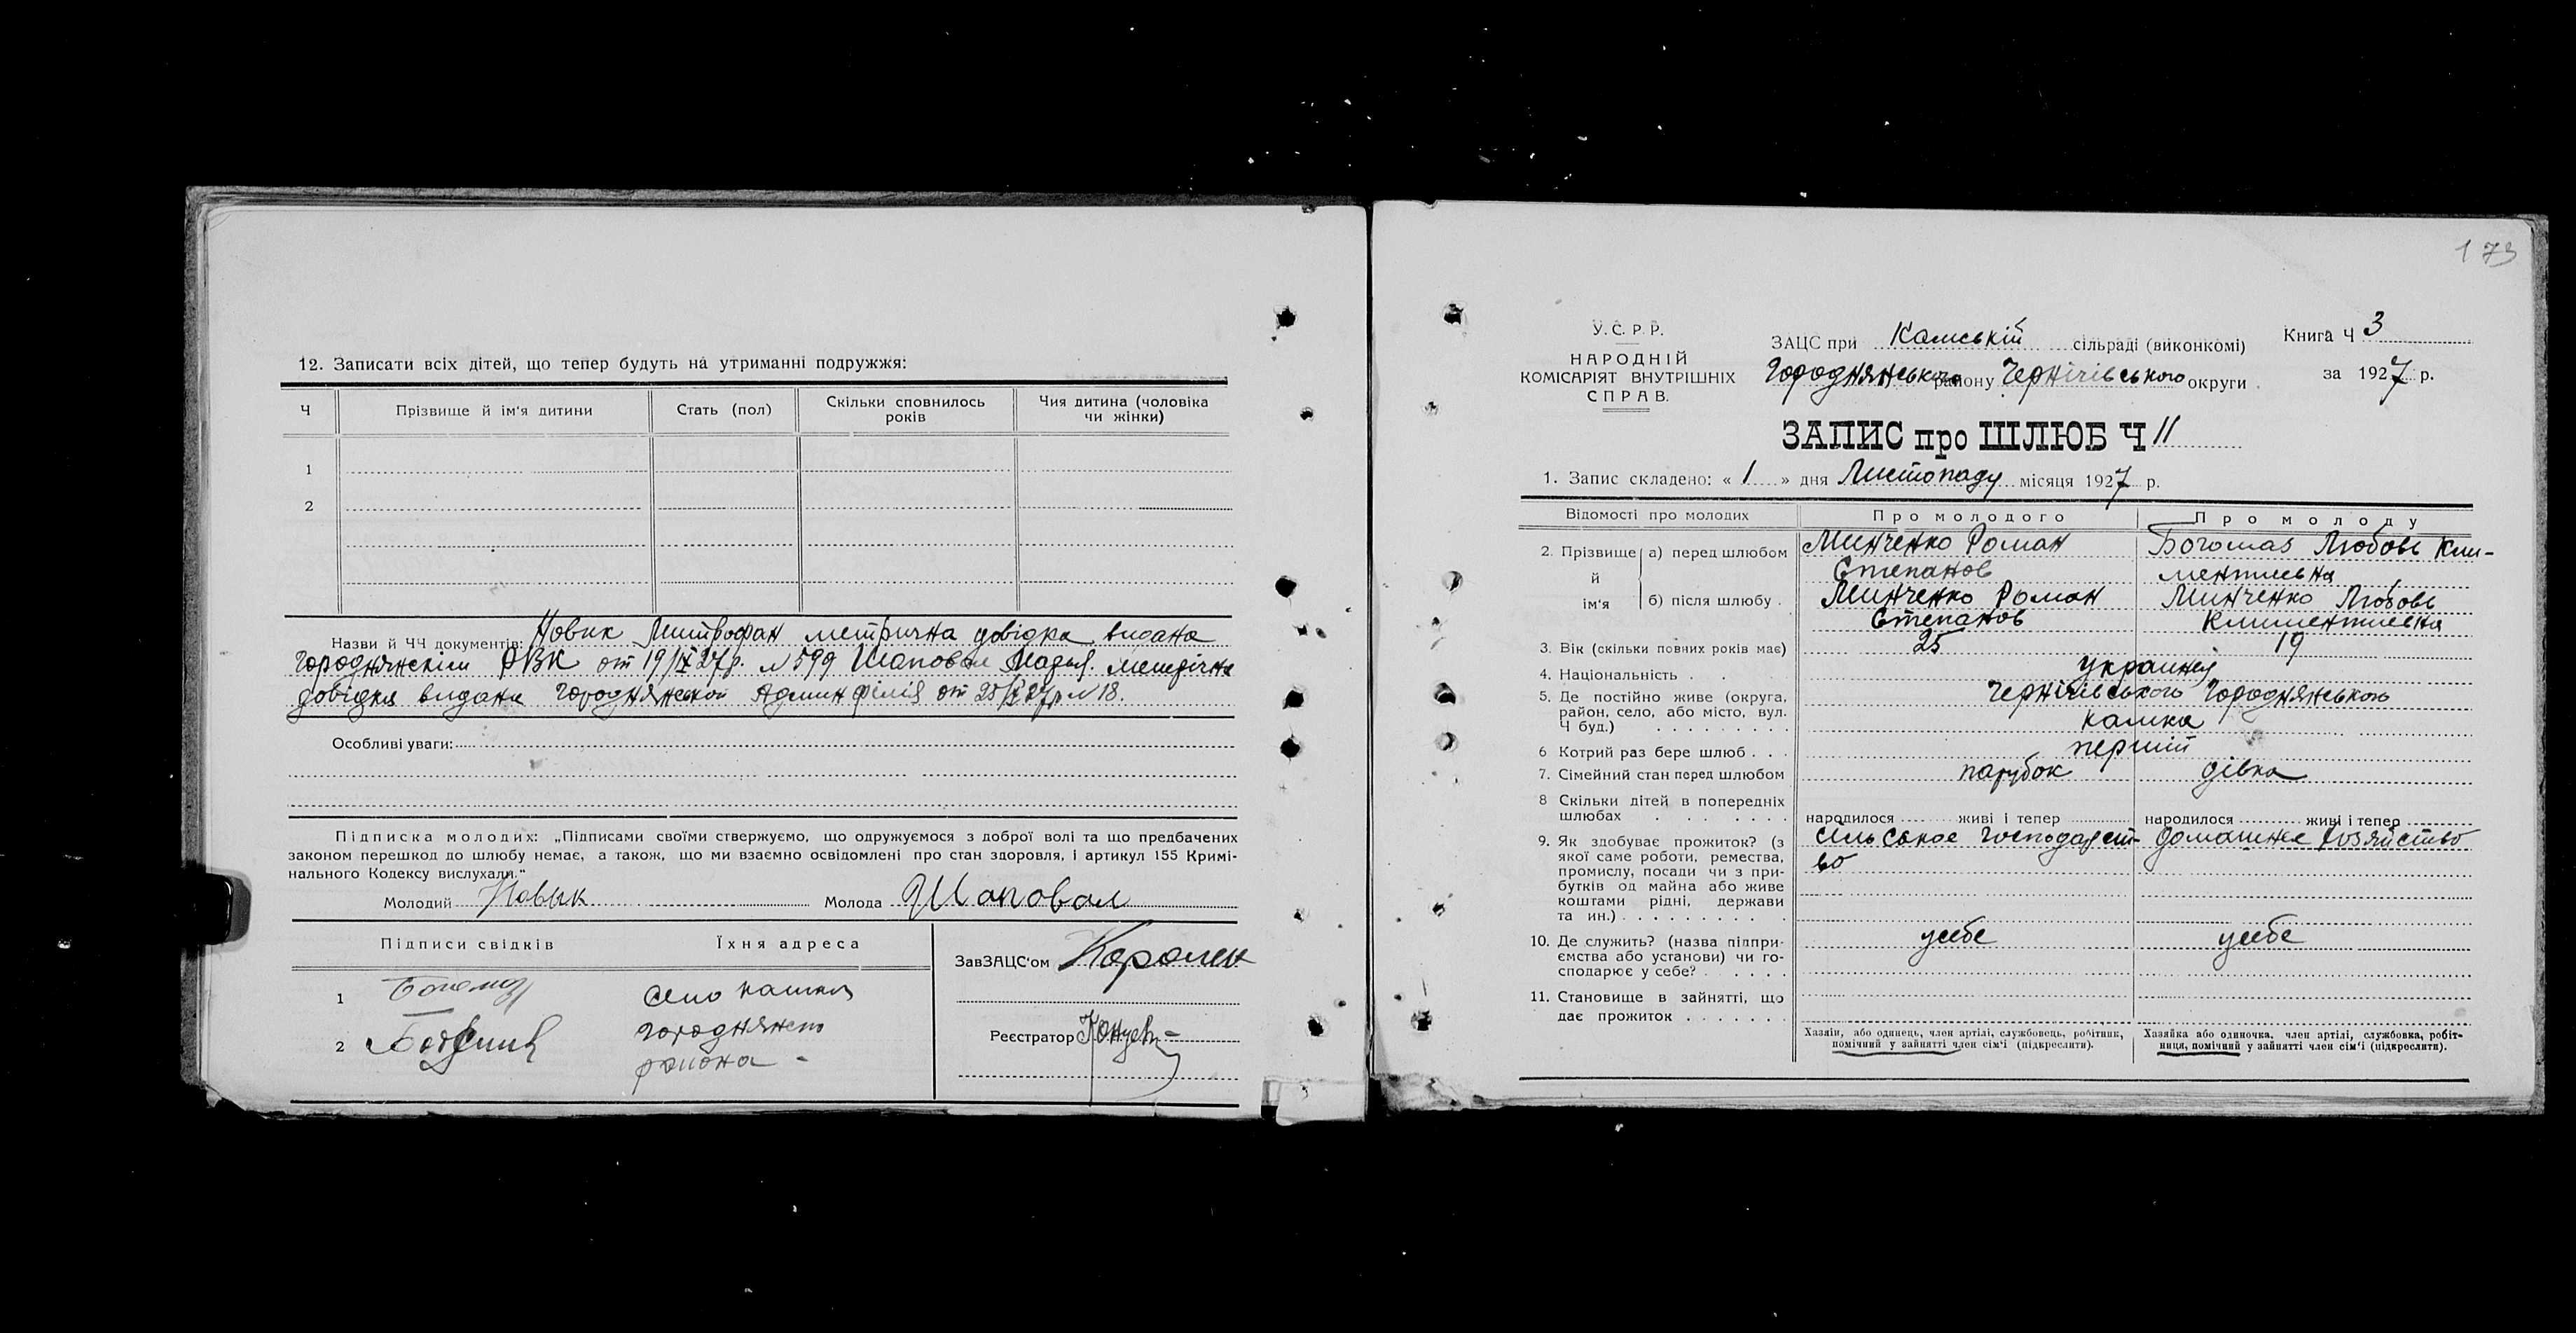 12. Записати всіх дітей, що тепер будуть на утриманні подружжя:
Ч
Прізвище й ім'я дитини
Стать (пол)
Скільки сповнилось
років
Чия дитина (чоловіка
чи жінки)
1
2
Назви й ЧЧ документів: Новик Митрофан метрична довідка видана
Городнянскім РВК от 19/IX 27р. N 599 Шаповал Мадья. медична
довідка видана Городнянськой Админ філія от 25/X 27р N 18.
Особливі уваги:
Підписка молодих: „Підписами своїми стверджуємо, що одружуємося з доброї волі та що предбачених
законом перешкод до шлюбу немає, а також, що ми взаємно освідомлені про стан здоровля, і артикул 155 Кримі-
нального Кодексу вислухали."
Молодий Новык Молода Шаповал
Підписи свідків
Їхня адреса
ЗавЗАЦС'ом
1 село камка
2 городнянст
района -
Реєстратор
173
У.С.Р.Р.
НАРОДНІЙ
КОМІСАРІЯТ ВНУТРІШНІХ
СПРАВ.
ЗАЦС при Камській сільраді (виконкомі)
Городнянського району Чернігівського округи
Книга Ч 3
за 1927 р.
ЗАПИС про ШЛЮБ Ч 11
1. Запис складено: « 1 » дня Листопаду місяця 1927 р.
Відомості про молодих
Про молодого
Про молоду
2. Прізвище й ім'я
а) перед шлюбом
Минченко Роман
Степанов
Богомаз Любовь Кли-
ментиевна
б) після шлюбу
Минченко Роман
Степанов
Минченко Любовь
Климентиевна
3. Вік (скільки повних років має)
25
19
4. Національність
украинці
5. Де постійно живе (округа,
район, село, або місто, вул.
Ч буд.)
Чернігівського Городнянського
камка
6 Котрий раз бере шлюб
перший
7. Сімейний стан перед шлюбом
парубок
дівка
8 Скільки дітей в попередніх
шлюбах
народилося живі і тепер
народилося живі і тепер
9. Як здобуває прожиток? (з
якої саме роботи, ремества,
промислу, посади чи з при-
бутків од майна або живе
коштами рідні, держави
та ин.)
сільское господарст-
во
домашнее хозяйство
10. Де служить? (назва підпри-
ємства або установи) чи го-
сподарює у себе?
усебе
усебе
11. Становище в зайнятті, що
дає прожиток
Хазяїн, або одинець, член артілі, службовець, робітник,
помічний у зайнятті член сім'ї (підкреслити).
Хазяйка або одиночка, член артілі, службовка, робіт-
ниця, помічний у зайнятті член сім'ї (підкреслити).